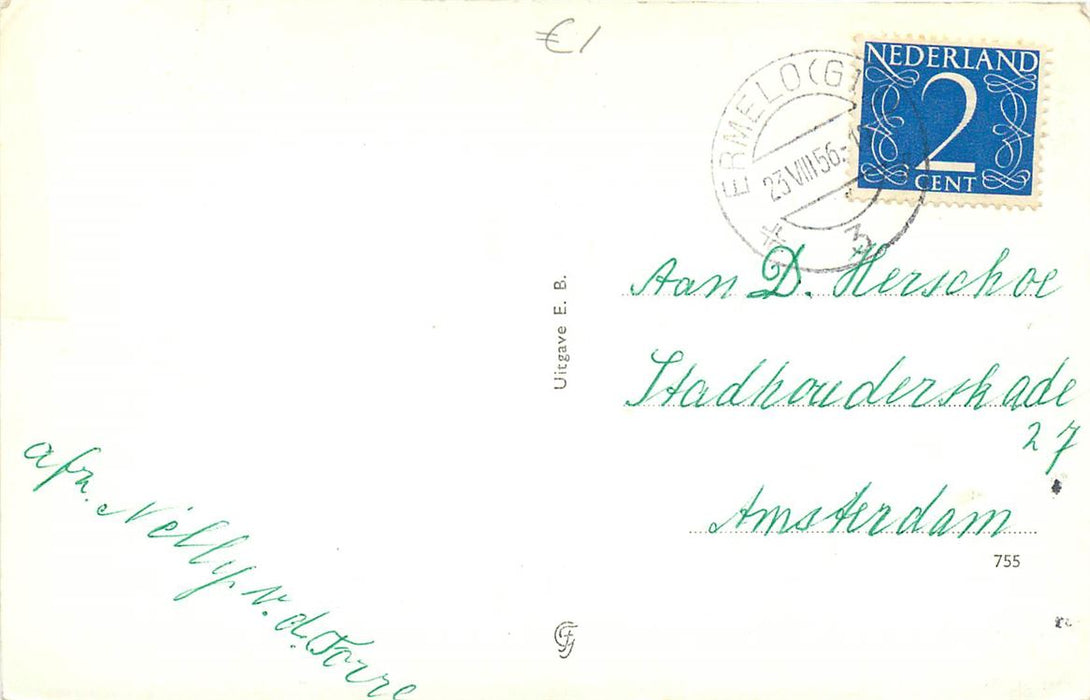 €1
NEDERLAND
2
CENT
ERMELO (G
23 VIII 56.-1
3
Aan D. Herschoe
Stadhouderskade
27
Amsterdam
755
Uitgave E. B.
afz. Nelly v. d. Torre